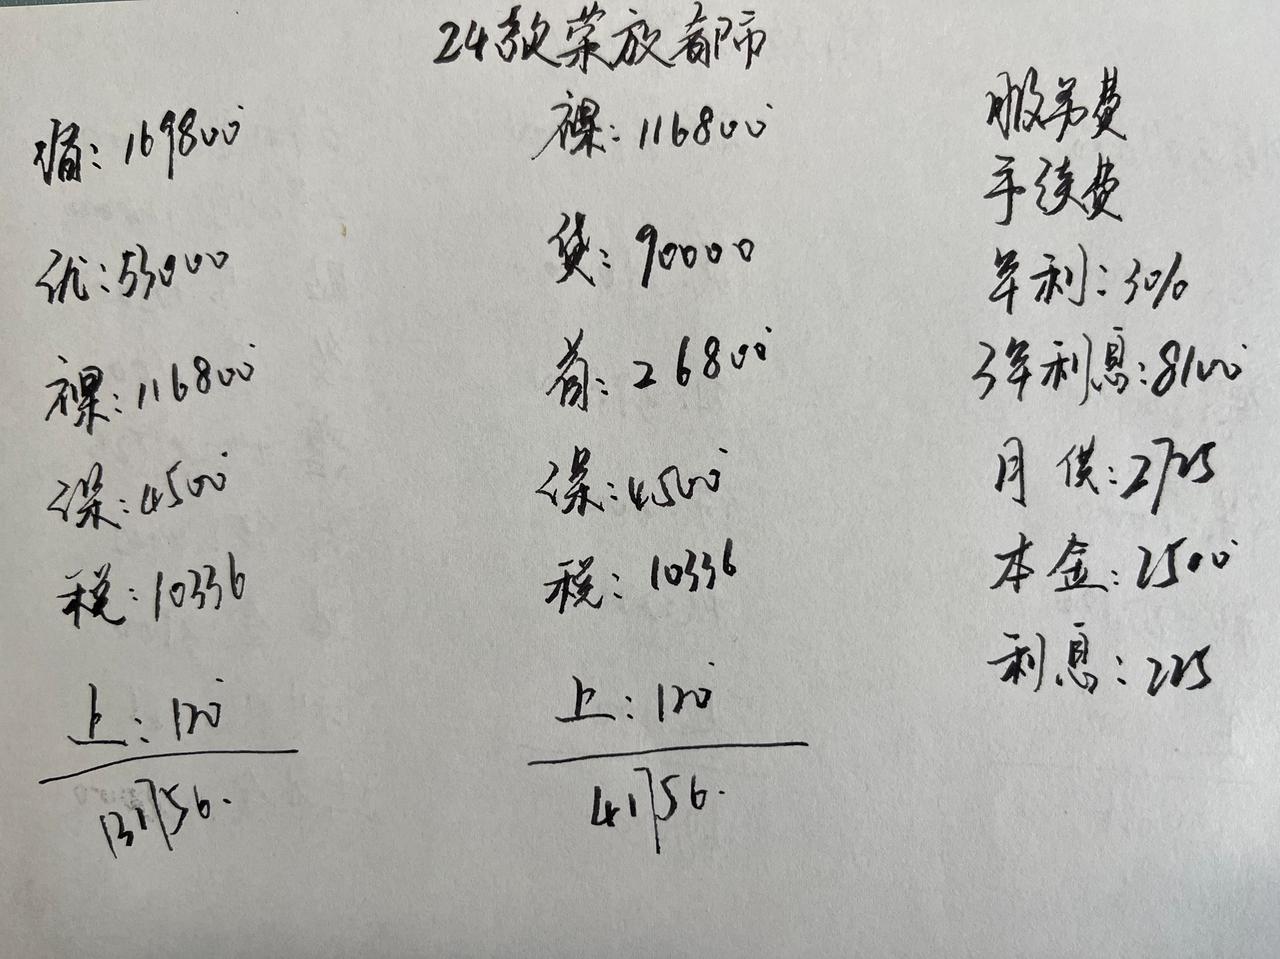 24款荣放都市
指：169800
优：53000
裸：116800
保：4500
税：10336
上：120
131756.
裸：116800
贷：90000
首：26800
保：4500
税：10336
上：120
41756.
服务费
手续费
年利：3%
3年利息：8100
月供：2725
本金：2500
利息：225